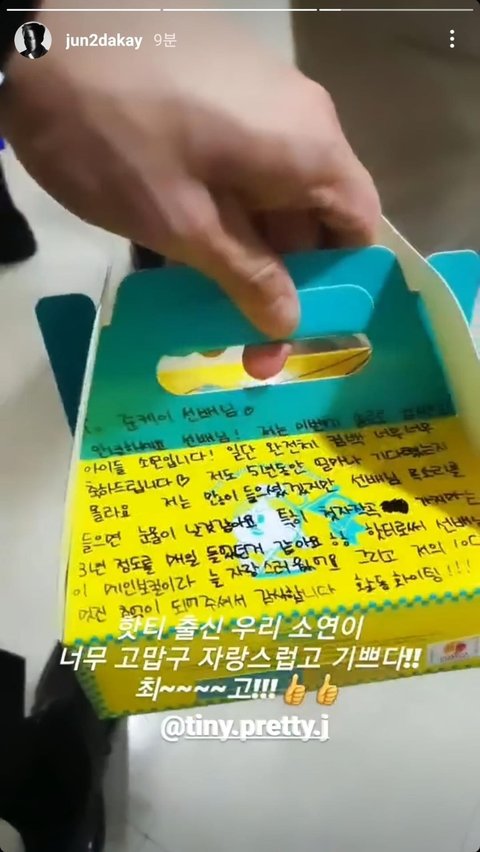 jun2dakay 9분
준케이 선배님♡
선배님! 저는 이번에 솔로로
아이들 소연입니다! 일단 완전체 컴백 너무너무
축하드립니다♡ 저도 5년동안 얼마나 기다렸는지
몰라요 저는 많이 들으셨겠지만 선배님 목소리를
들으면 눈물이 특히
3년 정도를 매일 들었던거 같아요 항상 핫티로써 선배님
이 메인보컬이라 늘 자랑스러웠어요 그리고 저의 10대
멋진 되어주셔서 감사합니다 활동 화이팅!!!
핫티 출신 우리 소연이
너무 고맙구 자랑스럽고 기쁘다!!
최~~~~고!!!👍👍
@tiny.pretty.j